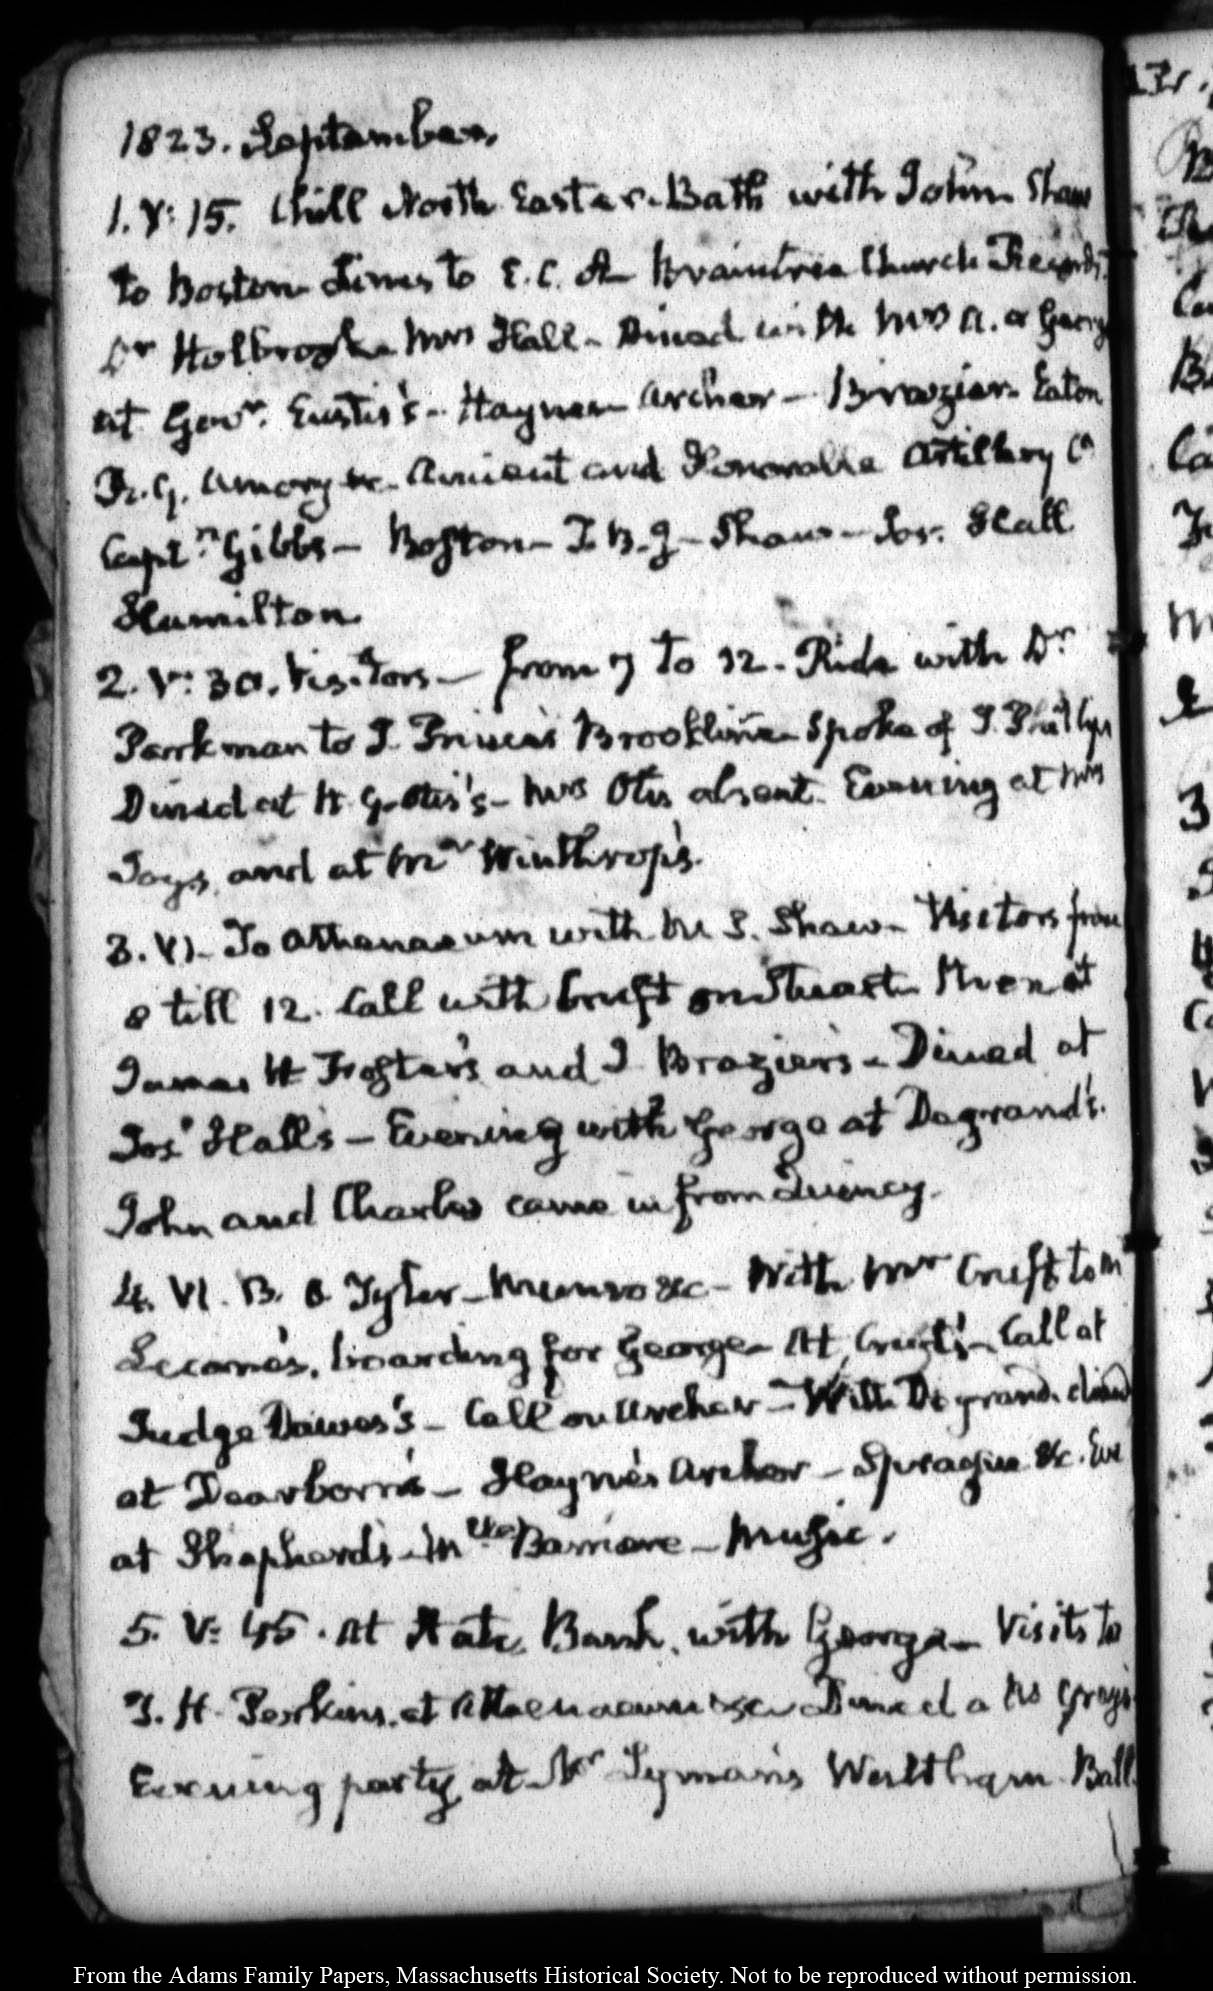 1823. September.
1. V: 15. Chill North Easter. Bath with John Shaw
to Boston Lines to E. C. A Braintree Church Records.
Dr Holbrook Mrs Hall - Dined with Mrs A. & George
at Govr. Eustis's - Haynes Archer - Brazier. Eaton
F. G. Amory &c - Ancient and Honorable Artillery Co
Captn Gibbs - Boston - T. B. J - Shaw - Jos. Hall
Hamilton.
2. V: 30. Visitors - from 7 to 12. Ride with Dr
Parkman to J. Brookline Spoke of J. Phillips
Dined at H. G. Otis's - Mrs Otis absent. Evening at Mrs
Joys, and at Mr Winthrop's.
3. VI. To Athenaeum with W. S. Shaw - Visitors from
8 till 12. Call with Cruft on Stuart. then at
James H Foster's and J Brazier's - Dined at
Jos. Hall's - Evening with George at Degrand's.
John and Charles came in from Quincy.
4. VI. B. O Tyler - Munro &c - With Mr Cruft to M
Lecain's, boarding for George - At Cruft's - Call at
Judge Dawes's - Call on Archer - With Degrand. dined
at Dearborn's - Haynes Archer - Sprague &c. Eve
at Shepherd's - Music.
5. V: 45. At State Bank, with George - Visits to
T. H. Perkins. at Athenaeum &c Dined a Grays
Evening party at Mr Lyman's Waltham Ball.
From the Adams Family Papers, Massachusetts Historical Society. Not to be reproduced without permission.